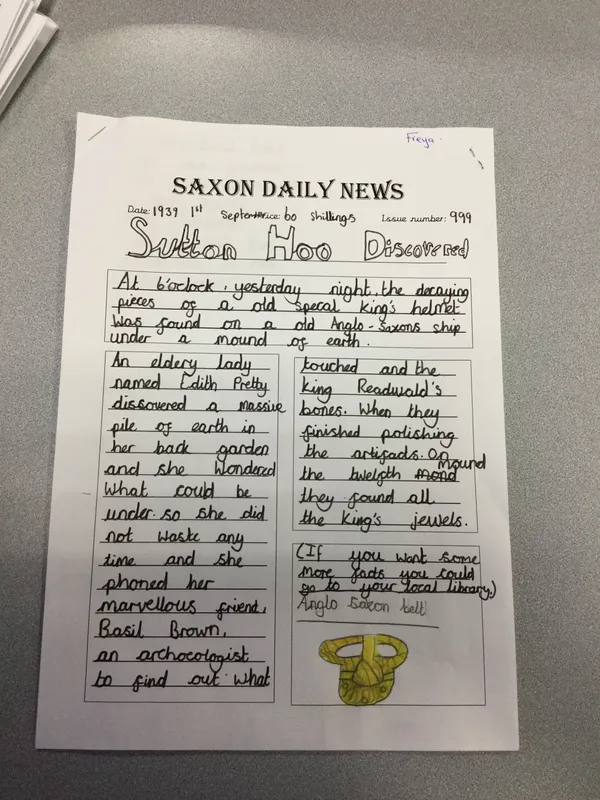 Freya.
SAXON DAILY NEWS
Date: 1939 1st September Price: 60 Shillings Issue number: 999
Sutton Hoo Discovered
At 6'oclock, yesterday night, the decaying
pieces of a old specal king's helmet
Was found on a old Anglo-Saxons ship
under a mound of earth.
An eldery lady
named Edith Pretty
dissovered a massive
pile of earth in
her back garden
and she wondered
What could be
under. so she did
not waste any
time and she
phoned her
marvellous friend,
Basil Brown,
an archocologist
to find out what
touched and the
king Readwald's
bones. When they
finished polishing
the artifads. On
the twelfth mond mound
they found all
the King's jewels.
(If you want some
more facts you could
go to your local library.)
Anglo Saxon belt